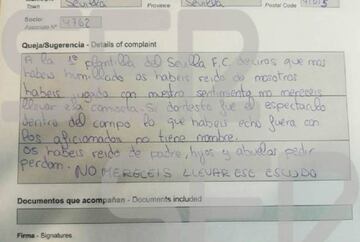 Town
Sevilla
Province
Sevilla
Postal Code
Socio:
Associate Nº
4762
Queja/Sugerencia - Details of complaint
A la 1ª plantilla del Sevilla F.C. deciros que nos
habeis humillado os habeis reido de nosotros
habeis jugado con nuestro sentimiento no mereceis
llevar esa camiseta. Si dantesco fue el espectaculo
dentro del campo lo que habeis echo fuera con
los aficionados no tiene nombre.
os habeis reido de padre, hijos y abuelos pedir
perdon. NO MERECEIS LLEVAR ESE ESCUDO
Documentos que acompañan - Documents included
Firma - Signatures